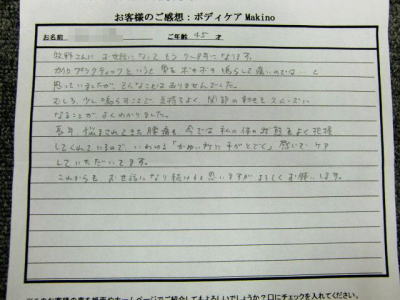 お客様のご感想：ボディケア Makino
お名前 ご年齢 45 才
牧野さんに お世話になって もう 年になります。
カイロプラクティックというと 骨を ボキボキ 鳴らして 痛いのでは…と
思っていましたが、そんなことは ありませんでした。
むしろ、少し 鳴らすことで 気持よく 関節の動きも スムーズに
なることが よくわかりました。
長年 悩まされてきた 腰痛も 今では 私の体の状態をよく把握
してくれているので、いわゆる「かゆい所に 手がとどく」感じで ケア
していただいてます。
これからも お世話になり続けると思いますが よろしくお願いします。
このお客様の声を紙面やホームページでご紹介してもよろしいでしょうか？口にチェックを入れてください。